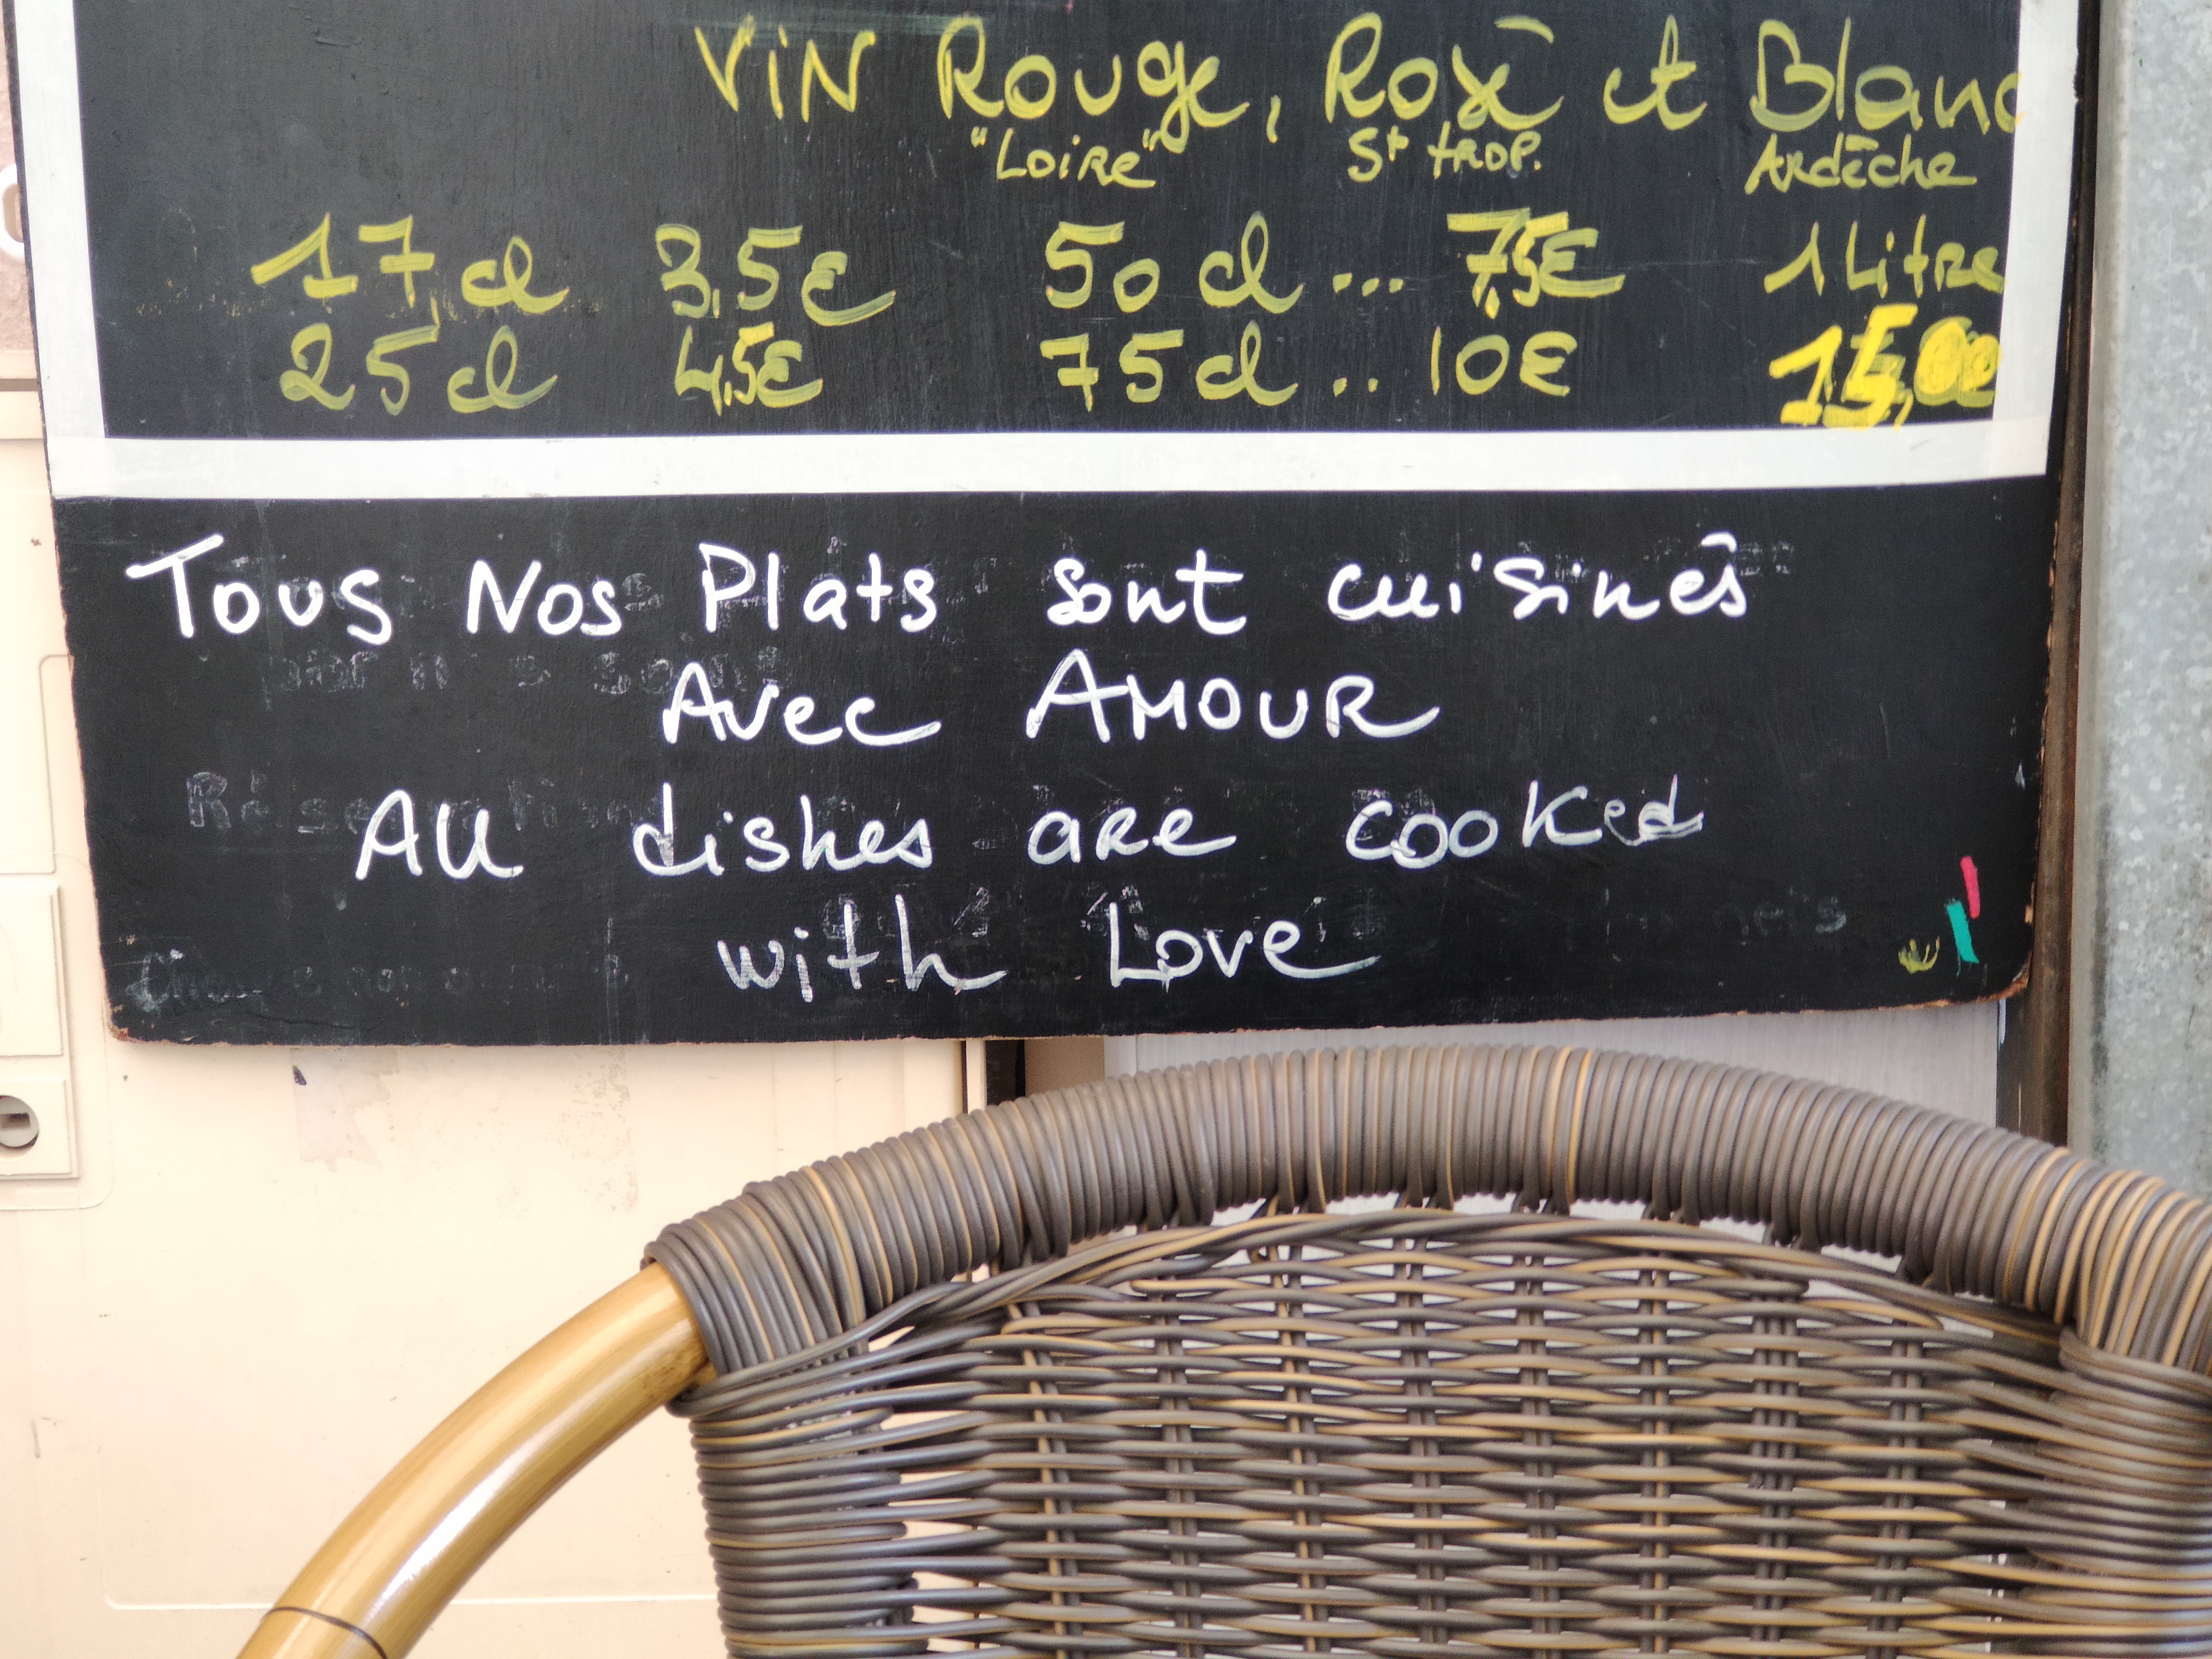 VIN Rouge, Rosé et Blanc
"Loire" St trop. Ardèche
17 cl 3,5€ 50 cl ... 7,5€ 1 Litre
25 cl 4,5€ 75 cl .. 10€ 15,00
Tous Nos Plats sont cuisinés
Avec AMOUR
All dishes are cooked
with Love